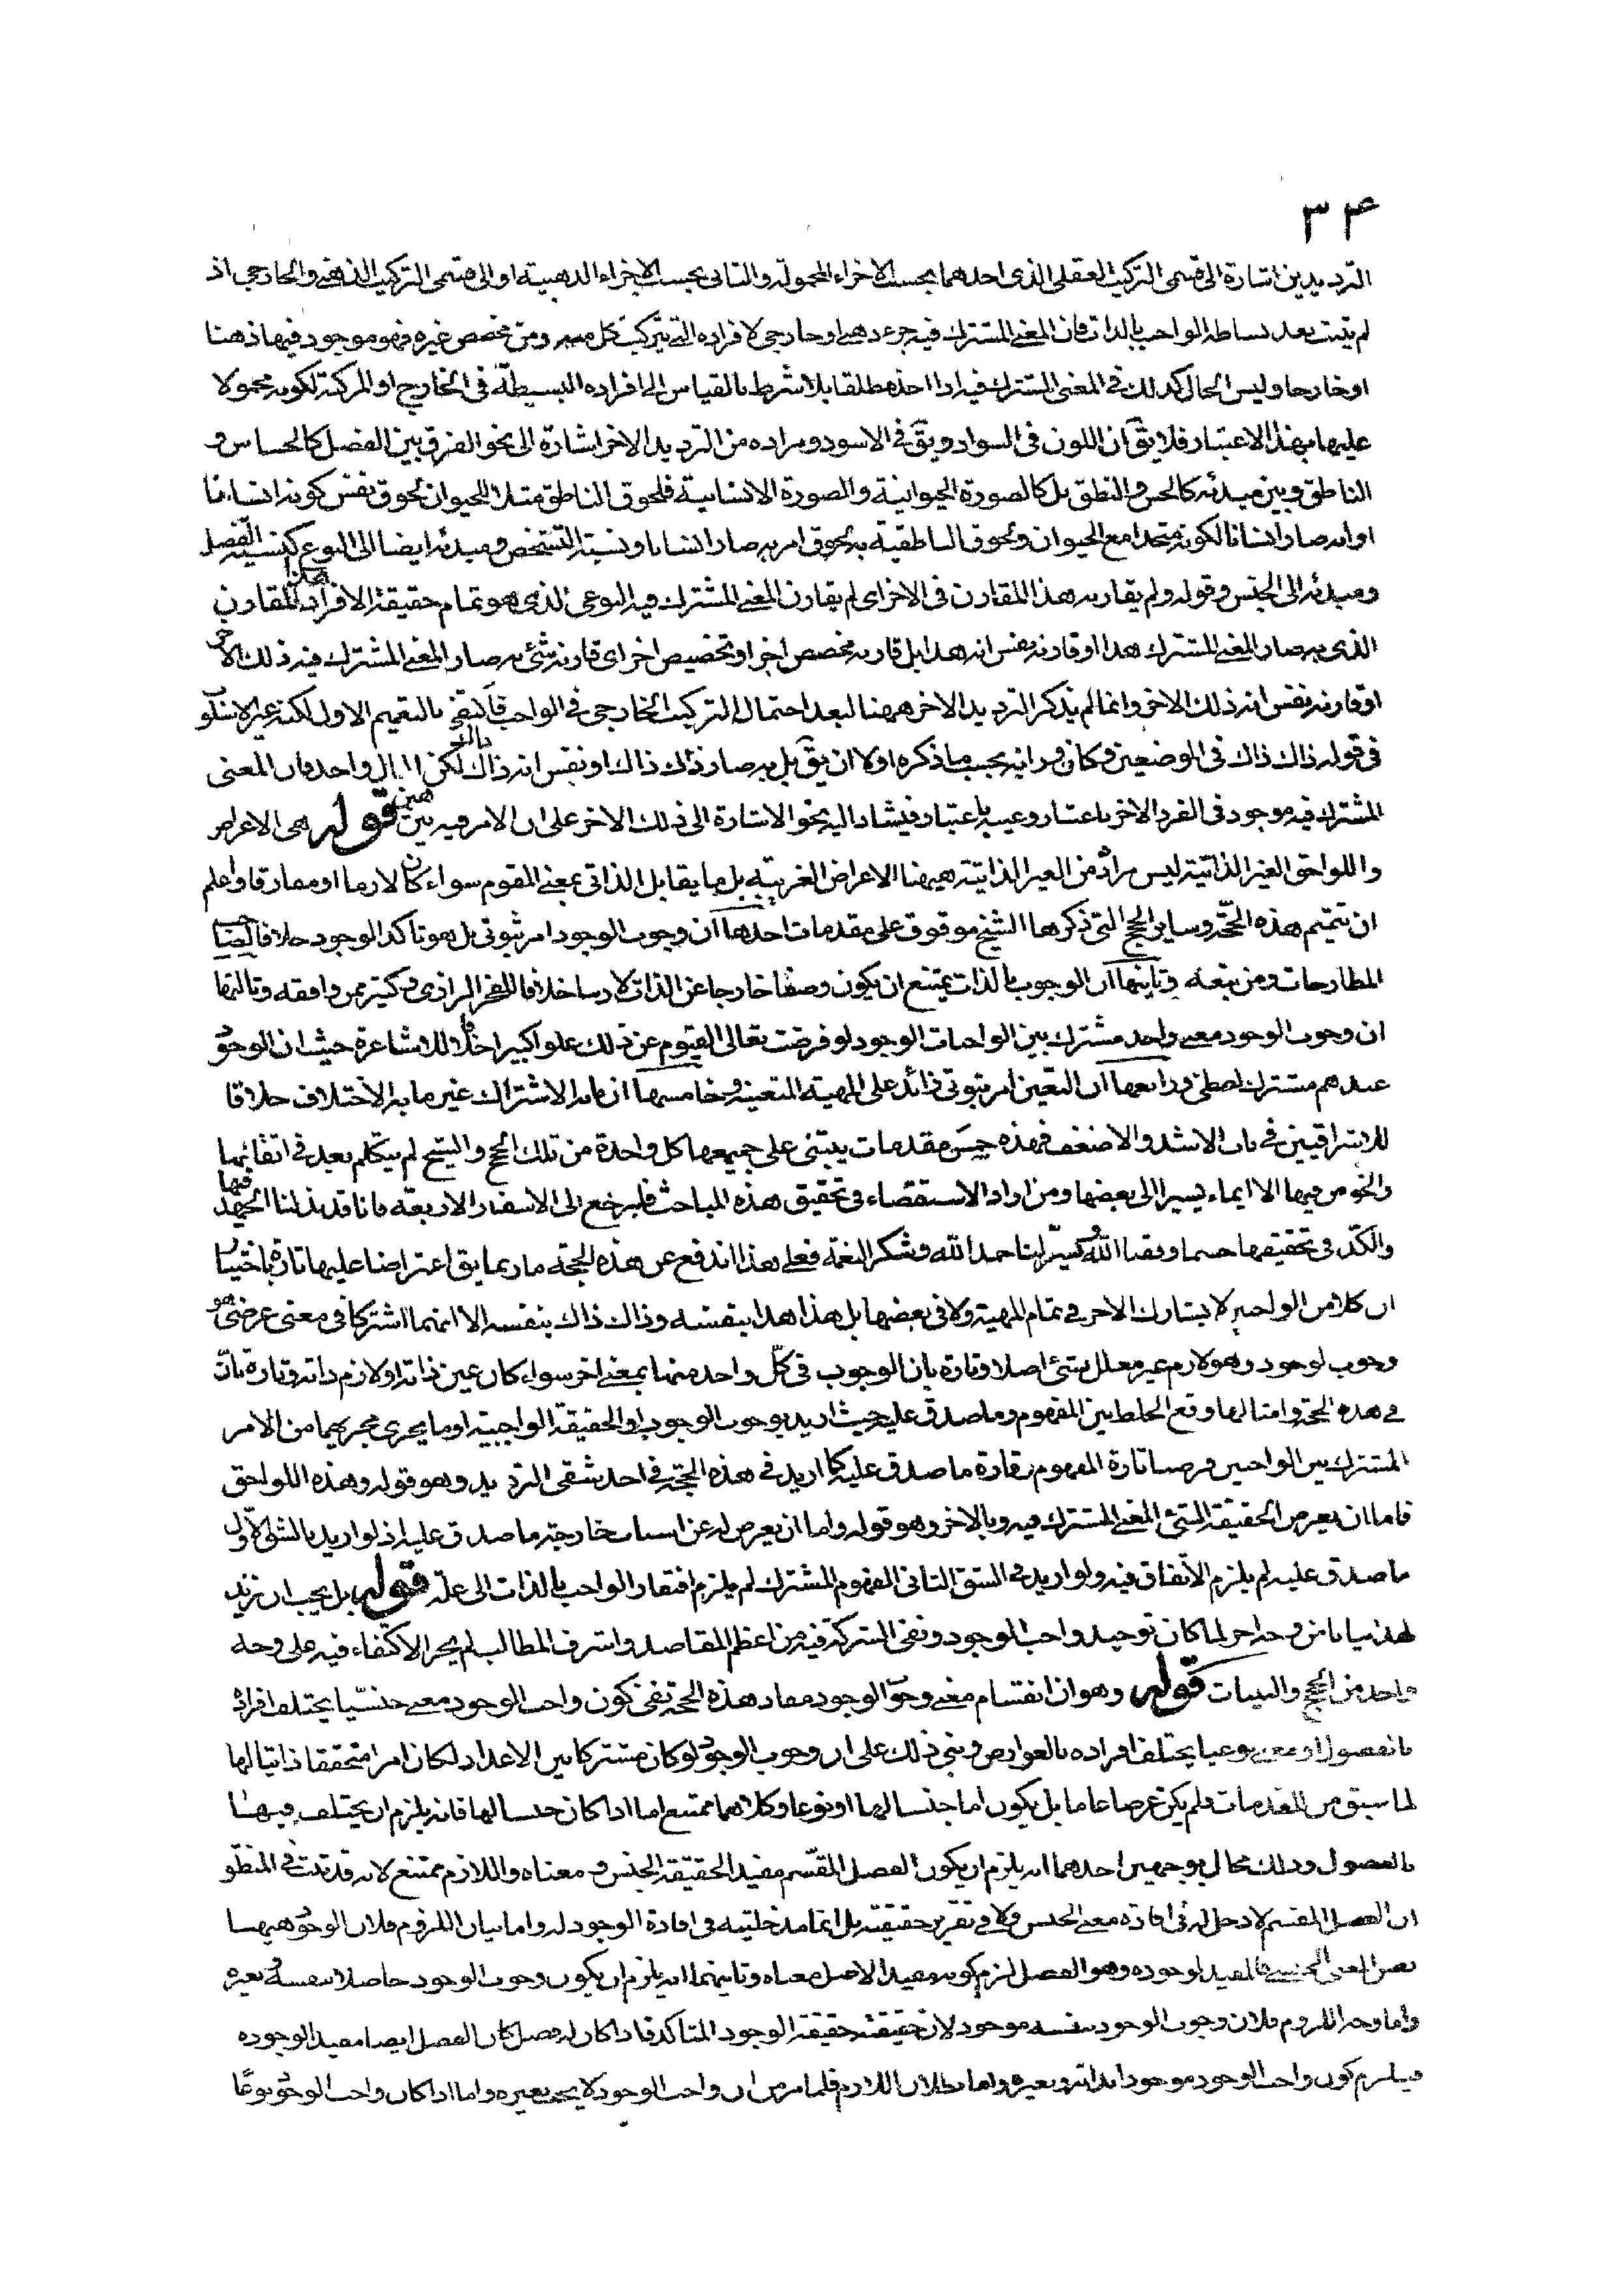 ٣۴
الترديدين اشارة الى قسمى التركيب العقلى الذى احدهما بحسب الاجزاء المحمولة والثانى بحسب الاجزاء الذهنية او الى قسمى التركيب الذهنى والخارجى اذ
لم يثبت بعد بساطة الواجب بالذات فان المعنى المشترك فيه جزء ذهنى او خارجى لافراده التى يتركب كل منه ومن مخصص غيره فهو موجود فيها ذهنا
او خارجا وليس الحال كذلك فى المعنى المشترك فيه اذا اخذ مطلقا بلا شرط بالقياس الى افراده البسيطة فى الخارج او المركبة لكونه محمولا
عليها بهذا الاعتبار فلا يق ان اللون فى السواد ويق فى الاسود ومراده من الترديد الاخر اشارة الى نحو الفرق بين الفصل كالحساس و
الناطق وبين مبدئه كالحس والنطق بل كالصورة الحيوانية والصورة الانسانية فلحوق الناطق مثلا للحيوان لحوق نفس كونه انسانا
او انه صار انسانا لكونه متحدا مع الحيوان ولحوق الناطقية به لحوق امر به صار انسانا ونسبة التشخص ومبدئه ايضا الى النوع كنسبة الفصل
ومبدئه الى الجنس وقوله ولم يقارنه هذا المقارن فى الاخر اى لم يقارن المعنى المشترك فيه النوعى الذى هو تمام حقيقة الافراد هذا المقارن
الذى به صار المعنى المشترك هذا او قارنه نفس انه هذا بل قارنه مخصص اخر او تخصيص اخر اى قارنه شئ به صار المعنى المشترك فيه ذلك الاخر
او قارنه نفس انه ذلك الاخر وانما لم يذكر الترديد الاخر ههنا لبعد احتمال التركيب الخارجى فى الواجب فاكتفى بالتعميم الاول لكنه غير الاسلوب
فى قوله ذاك ذاك فى الموضعين وكان وزانه بحسب ما ذكره اولا ان يق بل به صار ذاك ذاك او نفس انه ذاك ذاك لكن المال واحد فان المعنى
المشترك فيه موجود فى الفرد الاخر باعتبار وعينه باعتبار فيشار اليه نحو الاشارة الى ذلك الاخر على ان الامر فيه هين قوله هى الاعراض
واللواحق الغير الذاتية ليس مراده من الغير الذاتية ههنا الاعراض الغريبة بل ما يقابل الذاتى بمعنى المقوم سواء كان لازما او مفارقا واعلم
ان تتميم هذه الحجة وساير الحجج التى ذكرها الشيخ موقوف على مقدمات احدها ان وجوب الوجود امر ثبوتى بل هو تاكد الوجود خلافا لصاحب
المطارحات ومن تبعه وثانيها ان الوجوب بالذات يمتنع ان يكون وصفا خارجا عن الذات لازما خلافا للفخر الرازى وكثير ممن وافقه وثالثها
ان وجوب الوجود معنى واحد مشترك بين الواجبات الوجود لو فرضت تعالى القيوم عن ذلك علوا كبيرا خلافا للاشاعرة حيث ان الوجود
عندهم مشترك لفظى ورابعها ان التعين امر ثبوتى زائد على المهية المتعينة وخامسها ان ما به الاشتراك غير ما به الاختلاف خلافا
للاشراقيين فى باب الاشد والاضعف فهذه خمس مقدمات يبتنى على جميعها كل واحدة من تلك الحجج والشيخ لم يتكلم بعد فى اتقانها
والخوض فيها الا ايماء يسيرا الى بعضها ومن اراد الاستقصاء فى تحقيق هذه المباحث فليرجع الى الاسفار الاربعة فانا قد بذلنا الجهد فيها
والكد فى تحقيقها حسبما وفقنا الله ويسر لنا حمدا لله وشكر النعمة فعلى هذا اندفع عن هذه الحجة ما ربما يق اعتراضا عليها تارة باختيار
ان كلا من الواجبين لا يشارك الاخر فى تمام المهية ولا فى بعضها بل هذا هذا بنفسه وذاك ذاك بنفسه الا انهما اشتركا فى معنى عرضى هو
وجوب لوجود وهو لازم غير معلل بشئ اصلا وتارة بان الوجوب فى كل واحد منهما بمعنى اخر سواء كان عين ذاته او لازم ذاته وتارة بان
فى هذه الحجة وامثالها وقع الخلط بين المفهوم وما صدق عليه حيث اريد بوجوب الوجود او الحقيقة الواجبية او ما يجرى مجريهما من الامر
المشترك بين الواجبين فرضا تارة المفهوم وتارة ما صدق عليه كما اريد فى هذه الحجة فى احد شقى الترديد وهو قوله وهذه اللواحق
فاما ان يعرض لحقيقة الشئ المعنى المشترك فيه وبالاخر وهو قوله واما ان يعرض له عن اسباب خارجة ما صدق عليه اذ لو اريد بالشق الاول
ما صدق عليه لم يلزم الاتفاق فيه ولو اريد فى الشق الثانى المفهوم المشترك لم يلزم افتقار الواجب بالذات الى علة قوله بل يجب ان نزيد
لهذا بيانا من وجه اخر لما كان توحيد واجب الوجود ونفى الشركة فيه من اعظم المقاصد واشرف المطالب لم يجز الاكتفاء فيه على وجه
واحد من الحجج والبينات قوله وهو ان انقسام معنى وجوب الوجود مفاد هذه الحجة نفى كون واجب الوجود معنى جنسيا يختلف افراده
بالفصول او معنى نوعيا يختلف افراده بالعوارض وبنى ذلك على ان وجوب الوجود لو كان مشتركا بين الاعداد لكان امرا متحققا ذاتيا لها
لما سبق من المقدمات فلم يكن عرضا عاما بل يكون اما جنسا لها او نوعا وكلاهما ممتنع اما اذا كان جنسا لها فانه يلزم ان يختلف فيها
بالفصول وذلك محال بوجهين احدهما انه يلزم ان يكون الفصل المقسم مفيدا لحقيقة الجنس ومعناه واللازم ممتنع لانه قد ثبت فى المنطق
ان الفصل المقسم لا دخل له فى افادة معنى الجنس ولا فى تقرير حقيقته بل انما مدخليته فى افادة الوجود له واما بيان اللزوم فلان الوجود ههنا
نفس المعنى الجنسى فالمفيد لوجوده وهو الفصل لزم كونه مفيدا لاصل معناه وثانيهما انه يلزم ان يكون وجوب الوجود حاصلا بنفسه وبغيره
واما وجه اللزوم فلان وجوب الوجود بنفسه موجود لان حقيقته حقيقة الوجود المتاكد فاذا كان له فصل كان الفصل ايضا مفيدا لوجوده
فيلزم كون واجب الوجود موجودا بذاته وبغيره واما بطلان اللازم فلما مر من ان واجب الوجود لا يجب بغيره واما اذا كان واجب الوجود نوعا